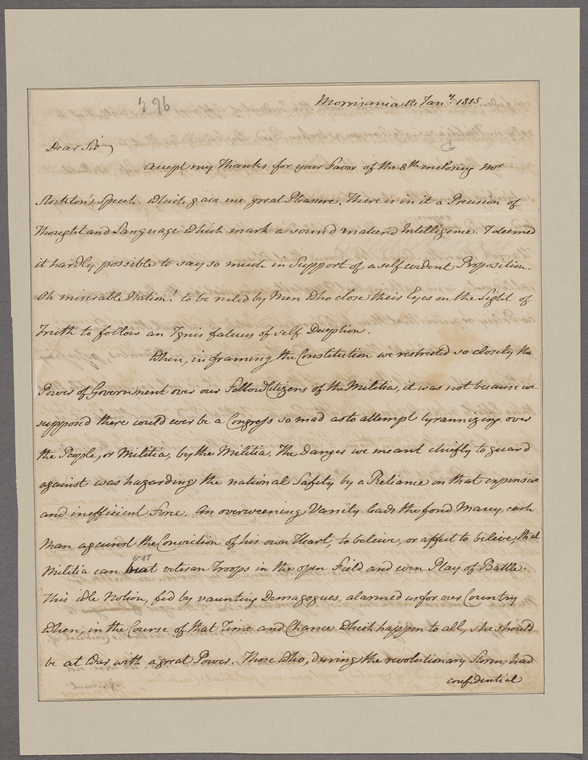 596
Morrisania 18 Jany. 1815
Dear Sir
Accept my Thanks for your Favor of the 8th enclosing Mr
Stockton's Speech which gave me great Pleasure. There is in it a Precision of
Thought and Language which mark a sound matured Intelligence. I deemed
it hardly possible to say so much in Support of a self evident Proposition.
Oh miserable Nation! to be ruled by Men who close their Eyes on the Light of
Truth to follow an Ignis fatuus of self Deception.
When, in framing the Constitution we restricted so closely the
Power of Government over our Fellow Citizens of the Militia, it was not because we
supposed there could ever be a Congress so mad as to attempt tyrannizing over
the People, or Militia, by the Militia. The Danger we meant chiefly to guard
against was hazarding the national Safety by a Reliance on that expensive
and inefficient Force. An overweening Vanity leads the fond Many, each
Man against the Conviction of his own Heart, to beleive, or affect to beleive, that
Militia can beat veteran Troops in the open Field and even Play of Battle.
This idle Notion, fed by vaunting Demagogues, alarmed us for our Country
when, in the Course of that Time and Chance which happen to all, she should
be at War with a great Power. Those who, during the revolutionary Storm, had
confidential